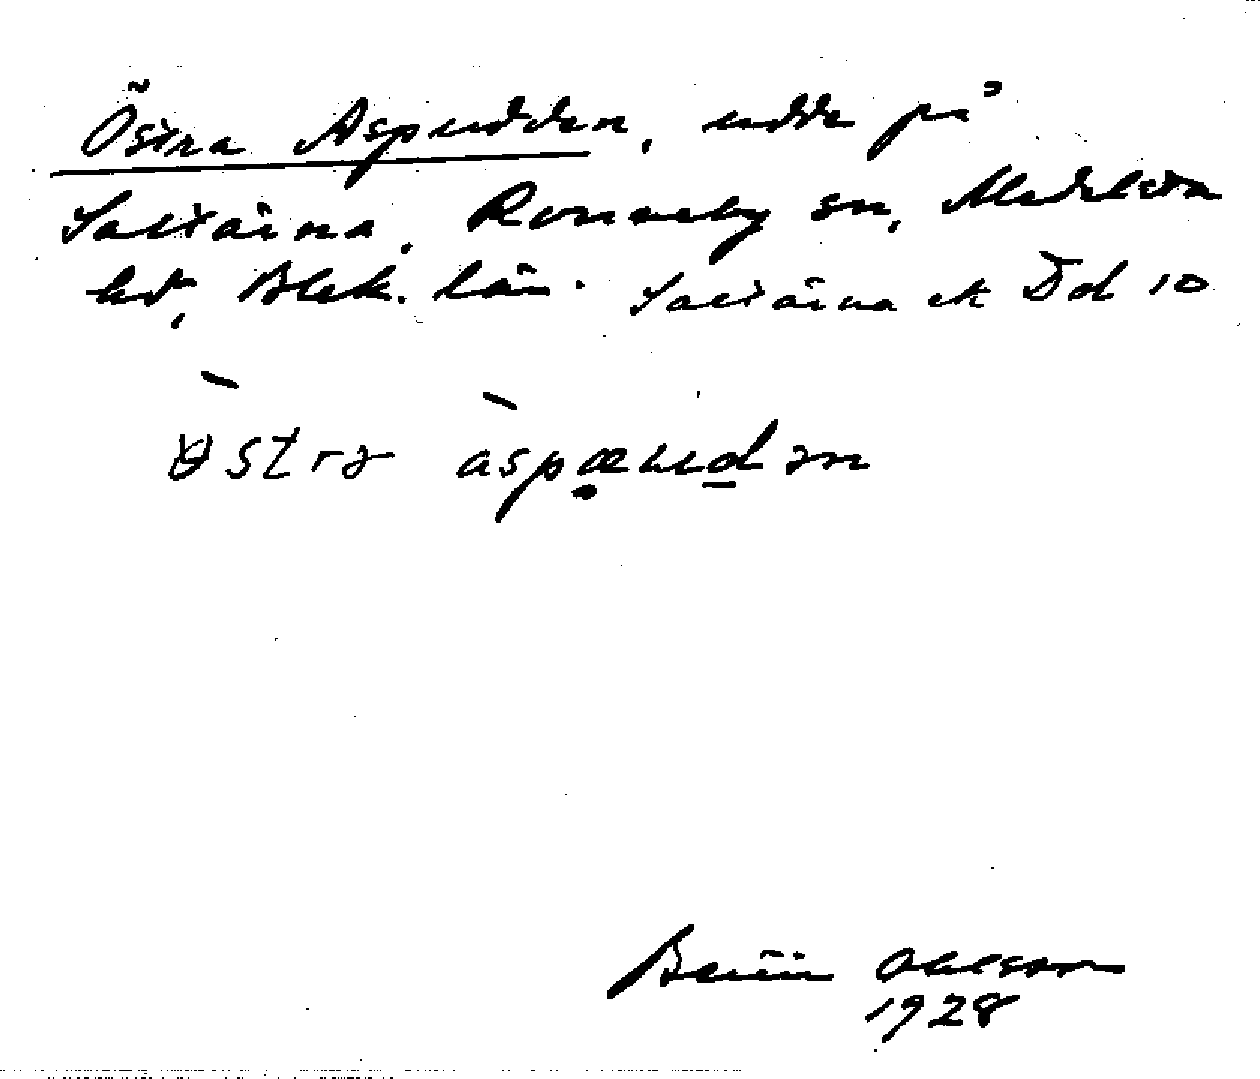 Östra Aspudden, udde på
Saltärna, Ronneby sn, Medelsta
hd, Blek. län. Saltärna ek Dd 10
østrə aspæudən
Bertil Ohlsson
1928